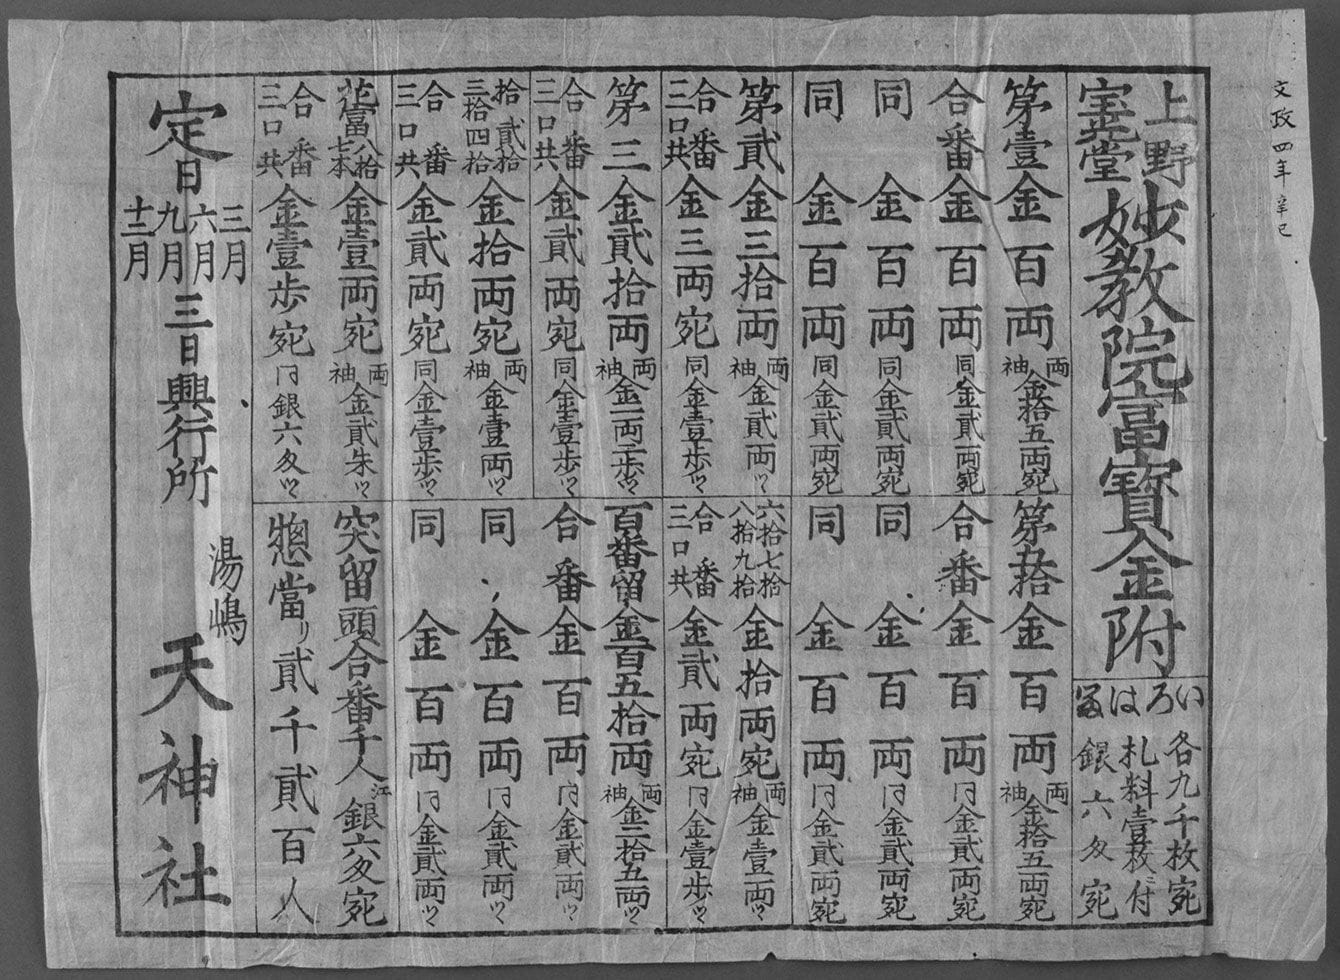 文政四年辛巳
上野
寳堂
妙教院富寳金附
いろは
各九千枚宛
札料壹枚ニ付
銀六匁宛
第壹 金百両 両袖 金拾五両宛
合番 金百両 同 金貳両宛
同 金百両 同 金貳両宛
同 金百両 同 金貳両宛
第貳 金三拾両 両袖 金貳両ツヽ
合番三口共 金三両宛 同 金壹歩ツヽ
第三 金貳拾両 両袖 金一両二歩ツヽ
合番三口共 金貳両宛 同 金壹歩ツヽ
拾貳拾三拾四拾 金拾両宛 両袖 金壹両ツヽ
合番三口共 金貳両宛 同 金壹歩ツヽ
花富八拾七本 金壹両宛 両袖 金貳朱ツヽ
合番三口共 金壹歩宛 同 銀六匁ツヽ
第五拾 金百両 両袖 金拾五両宛
合番 金百両 同 金貳両宛
同 金百両 同 金貳両宛
同 金百両 同 金貳両宛
六拾七拾八拾九拾 金拾両宛 両袖 金壹両ツヽ
合番三口共 金貳両宛 同 金壹歩ツヽ
百番留 金百五拾両 両袖 金二拾五両ツヽ
合番 金百両 同 金貳両ツヽ
同 金百両 同 金貳両ツヽ
同 金百両 同 金貳両ツヽ
突留頭合番千人江 銀六匁宛
惣當リ貳千貳百人
定日
三月
六月
九月
十二月
三日興行所
湯嶋
天神社